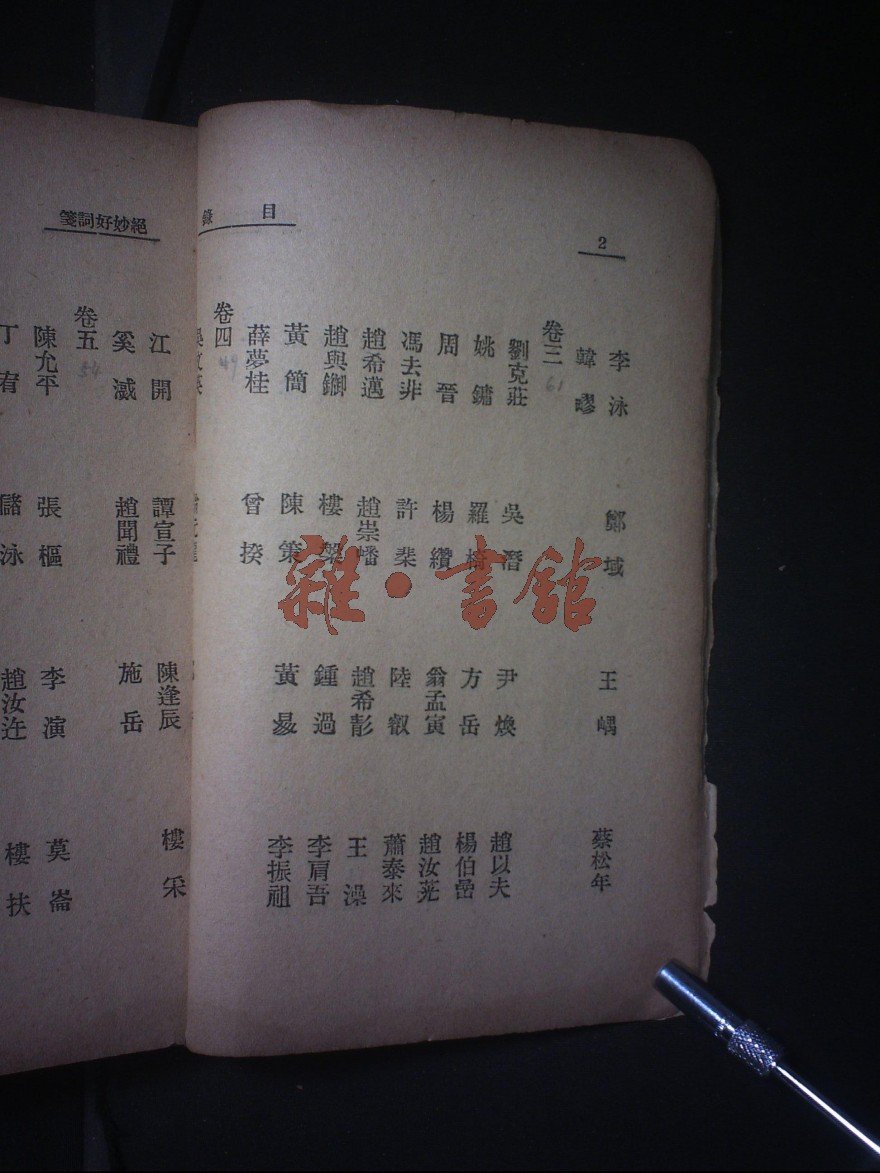 2
目　錄
李泳　鄭域　王嵎　蔡松年
韓疁
卷三 61
劉克莊　吳潛　尹煥　趙以夫
姚鏞　羅椅　方岳　楊伯嵒
周晉　楊纘　翁孟寅　趙汝茪
馮去非　許棐　陸叡　蕭泰來
趙希邁　趙崇嶓　趙希　王澡
趙與　樓槃　鍾過　李肩吾
黃簡　陳策　黃　李振祖
薛夢桂　曾揆
卷四 49
絕妙好詞箋
江開　譚宣子　陳逢辰　樓采
奚㵄　趙聞禮　施岳
卷五 54
陳允平　張樞　李演　莫崙
丁宥　儲泳　趙汝迕　樓扶
雜·書館